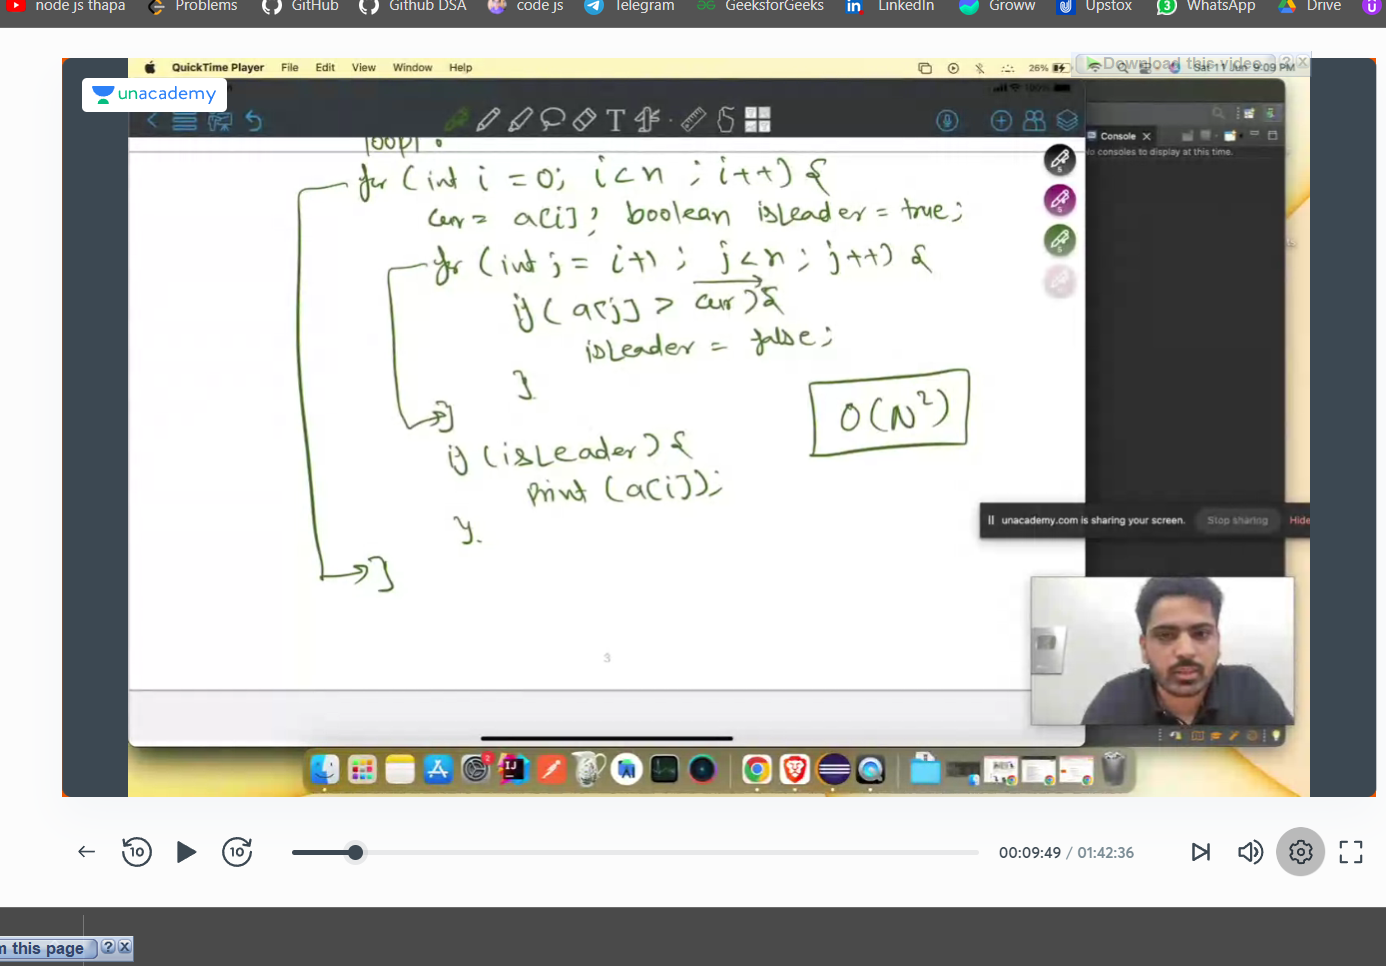 node js thapa Problems GitHub Github DSA code js Telegram GeeksforGeeks LinkedIn Groww Upstox 3 WhatsApp Drive
QuickTime Player File Edit View Window Help 26% Sat 11 Jun 9:09 PM
Download this video ? X
unacademy
Console
consoles to display at this time.
loop1 :
for (int i = 0; i<n ; i++) {
cur = a[i]; boolean isLeader = true;
for (int j = i+1 ; j<n ; j++) {
if ( a[j] > cur) {
isLeader = false;
}
}
O(N²)
if (isLeader) {
print (a[i]);
}
}
unacademy.com is sharing your screen. Stop sharing Hide
3
10 10 00:09:49 / 01:42:36
this page ? X